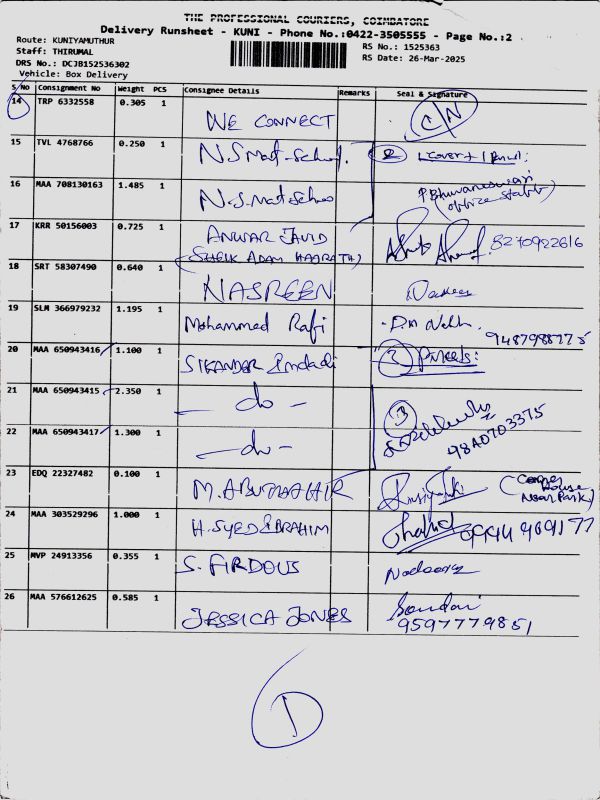 THE PROFESSIONAL COURIERS, COIMBATORE
Delivery Runsheet - KUNI - Phone No.:0422-3505555 - Page No.:2
Route: KUNIYAMUTHUR
Staff: THIRUMAL
DRS No.: DCJB152536302
Vehicle: Box Delivery
RS No.: 1525363
RS Date: 26-Mar-2025
S No Consignment No Weight PCS Consignee Details Remarks Seal & Signature
14 TRP 6332558 0.305 1 WE CONNECT C/N
15 TVL 4768766 0.250 1 N.S Mat-School. 2 1 cover + 1 Parcel:
16 MAA 708130163 1.485 1 N.S.Mat School P Bhuvaneswari (office staff)
17 KRR 50156003 0.725 1 ANWAR JAVID (SHEIK ADAM HAZRATH) 8270922616
18 SRT 58307490 0.640 1 NASREEN
19 SLM 366979232 1.195 1 Mohammed Rafi 9487988775
20 MAA 650943416 1.100 1 SIKANDAR Imdadi 2 Parcels:
21 MAA 650943415 2.350 1 - do - 3
22 MAA 650943417 1.300 1 - do - 98A0703375
23 EDQ 22327482 0.100 1 M. ABUTHAHIR (Corner House Near Park)
24 MAA 303529296 1.000 1 H. SYED EBRAHIM Shahid
25 MVP 24913356 0.355 1 S. FIRDOUS
26 MAA 576612625 0.585 1 JESSICA JONES Sundari 9597779851
1